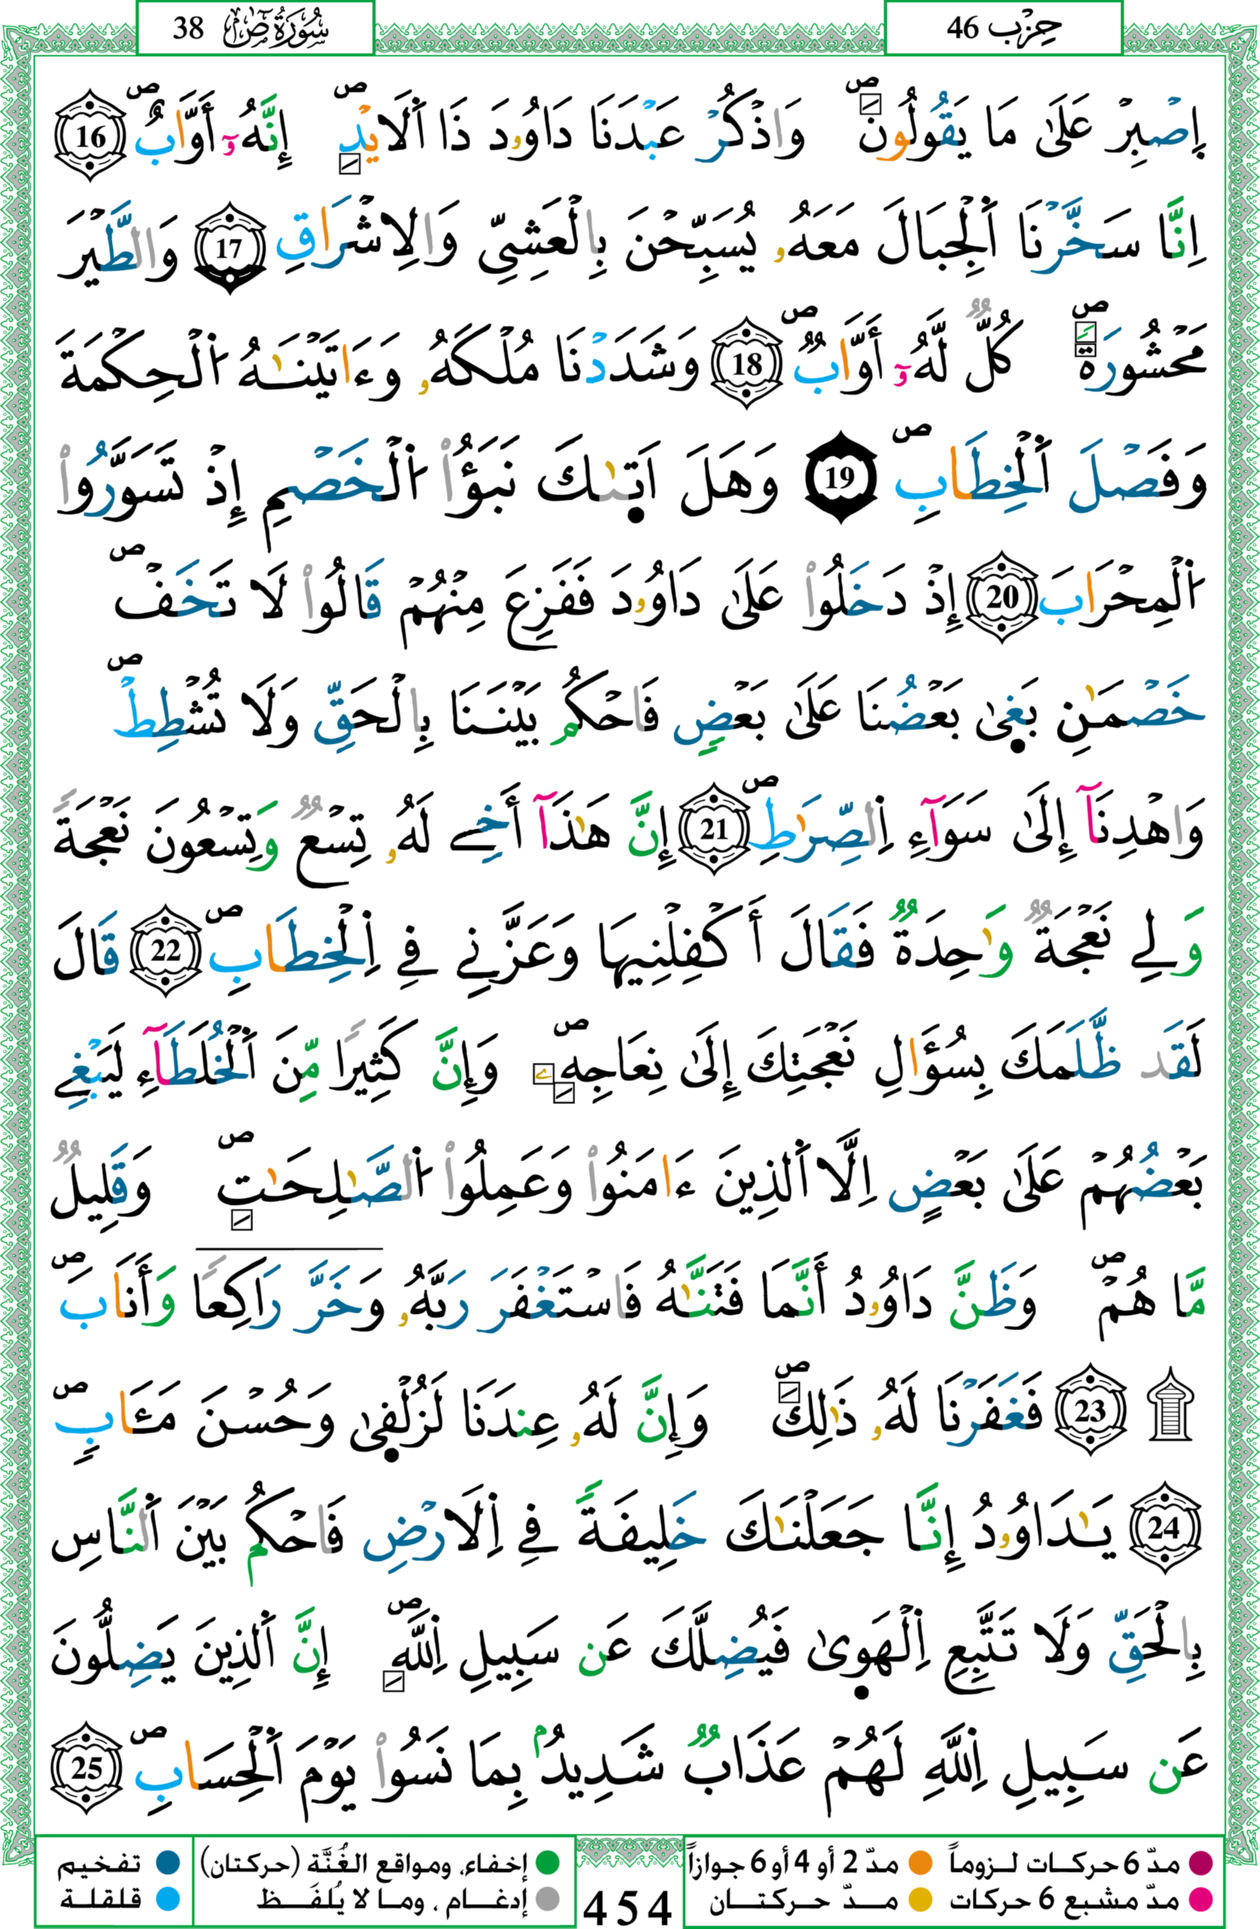 سُورَةُ صٓ 38
حِزْب 46
اِ۪صْبِرْ عَلَىٰ مَا يَقُولُونَۖ وَاذْكُرْ عَبْدَنَا دَاوُۥدَ ذَا اَ۬لَايْدِۖ إِنَّهُۥٓ أَوَّابٌۖ 16
اِنَّا سَخَّرْنَا اَ۬لْجِبَالَ مَعَهُۥ يُسَبِّحْنَ بِالْعَشِيِّ وَالِاشْرَاقِ 17 وَالطَّيْرَ
مَحْشُورَةٗۖ كُلّٞ لَّهُۥٓ أَوَّابٞۖ 18 وَشَدَدْنَا مُلْكَهُۥ وَءَاتَيْنَٰهُ اُ۬لْحِكْمَةَ
وَفَصْلَ اَ۬لْخِطَابِۖ 19 وَهَلَ اَت۪يٰكَ نَبَؤُاْ اُ۬لْخَصْمِ إِذْ تَسَوَّرُواْ
اُ۬لْمِحْرَابَ 20 إِذْ دَخَلُواْ عَلَىٰ دَاوُۥدَ فَفَزِعَ مِنْهُمْ قَالُواْ لَا تَخَفْۖ
خَصْمَٰنِ بَغ۪يٰ بَعْضُنَا عَلَىٰ بَعْضٖ فَاحْكُم بَيْنَنَا بِالْحَقِّ وَلَا تُشْطِطْۖ
وَاهْدِنَآ إِلَىٰ سَوَآءِ اِ۬لصِّرَٰطِۖ 21 إِنَّ هَٰذَآ أَخِے لَهُۥ تِسْعٞ وَتِسْعُونَ نَعْجَةٗ
وَلِے نَعْجَةٞ وَٰحِدَةٞ فَقَالَ أَكْفِلْنِيهَا وَعَزَّنِے فِے اِ۬لْخِطَابِۖ 22 قَالَ
لَقَد ظَّلَمَكَ بِسُؤَالِ نَعْجَتِكَ إِلَىٰ نِعَاجِهِۦۖ وَإِنَّ كَثِيراٗ مِّنَ اَ۬لْخُلَطَآءِ لَيَبْغِے
بَعْضُهُمْ عَلَىٰ بَعْضٍ اِلَّا اَ۬لذِينَ ءَامَنُواْ وَعَمِلُواْ اُ۬لصَّٰلِحَٰتِۖ وَقَلِيلٞ
مَّا هُمْۖ وَظَنَّ دَاوُۥدُ أَنَّمَا فَتَنَّٰهُ فَاسْتَغْفَرَ رَبَّهُۥ وَخَرَّ رَاكِعاٗ وَأَنَابَۖ
23 فَغَفَرْنَا لَهُۥ ذَٰلِكَۖ وَإِنَّ لَهُۥ عِندَنَا لَزُلْف۪يٰ وَحُسْنَ مَـَٔابٖۖ
24 يَٰدَاوُۥدُ إِنَّا جَعَلْنَٰكَ خَلِيفَةٗ فِے اِ۬لَارْضِ فَاحْكُم بَيْنَ اَ۬لنَّاسِ
بِالْحَقِّ وَلَا تَتَّبِعِ اِ۬لْهَو۪يٰ فَيُضِلَّكَ عَن سَبِيلِ اِ۬للَّهِۖ إِنَّ اَ۬لذِينَ يَضِلُّونَ
عَن سَبِيلِ اِ۬للَّهِ لَهُمْ عَذَابٞ شَدِيدُۢ بِمَا نَسُواْ يَوْمَ اَ۬لْحِسَابِۖ 25
مدّ 6 حركات لـزوماً مدّ 2 أو 4 أو 6 جوازاً
مدّ مشبع 6 حركات مـــدّ حركتــان
إخفاء، ومواقع الغُنَّة (حركتان) تفخيم
إدغـام ، ومـا لا يُلفَـظ قلقلة
454